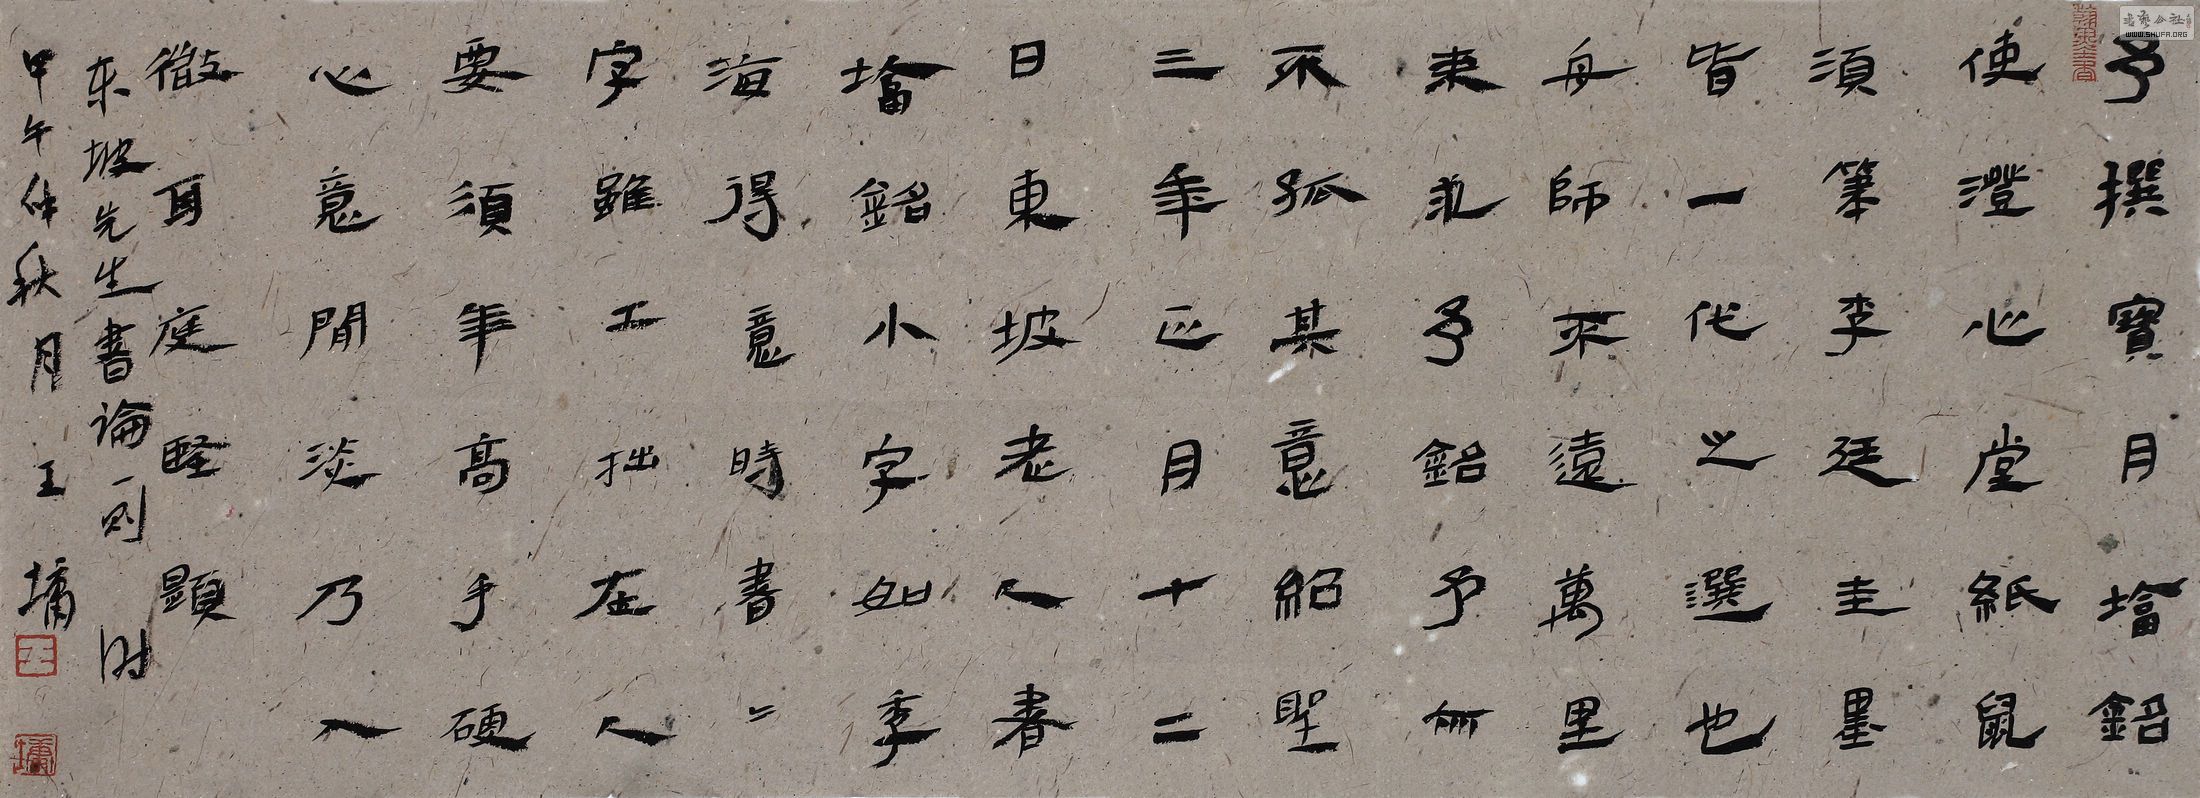 予撰寶月塔銘
使澄心堂紙鼠
須筆李廷圭墨
皆一代之選也
舟師不遠萬里
来求予銘予亦
不孤其意紹聖
三年正月十二
日東坡老人書
塔銘小字如季
海得意時書〻
字雖工拙在人
要須年高手硬
心意閒淡乃入
微耳庭堅題
东坡先生書論一則时
甲午仲秋月王墉
墉
WWW.SHUFA.ORG